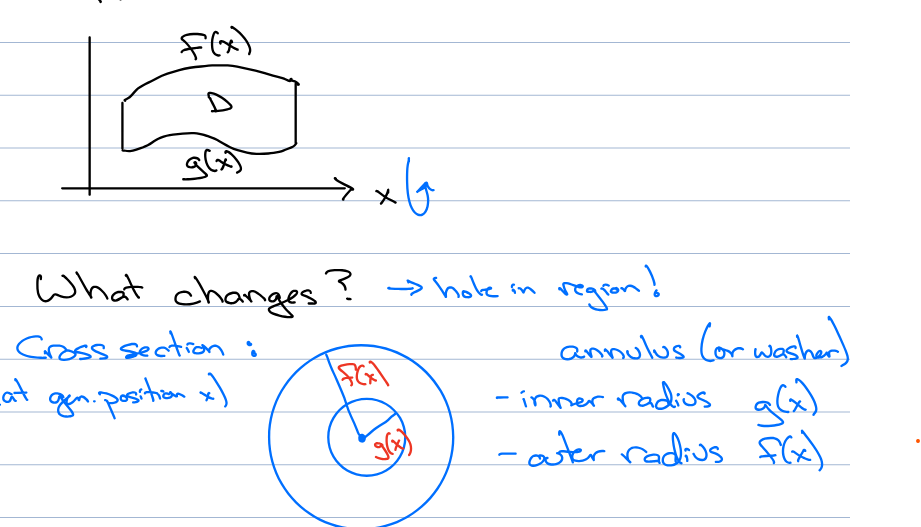 f(x)
D
g(x)
x
What changes? → hole in region!
Cross section :
at gen. position x)
annulus (or washer)
- inner radius g(x)
- outer radius f(x)
f(x)
g(x)